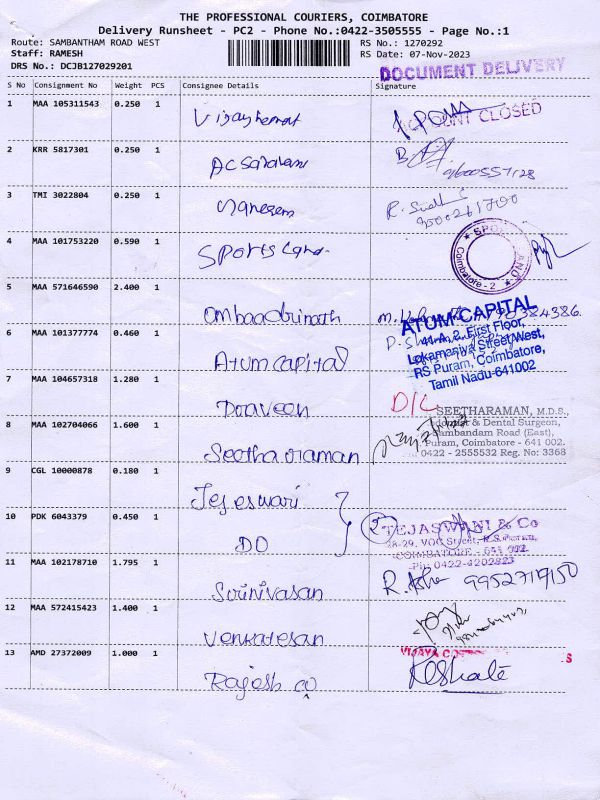 THE PROFESSIONAL COURIERS, COIMBATORE
Delivery Runsheet - PC2 - Phone No.:0422-3505555 - Page No.:1
Route: SAMBANTHAM ROAD WEST RS No.: 1270292
Staff: RAMESH RS Date: 07-Nov-2023
DRS No.: DCJB127029201
DOCUMENT DELIVERY
S No Consignment No Weight PCS Consignee Details Signature
1 MAA 105311543 0.250 1
CLOSED
2 KRR 5817301 0.250 1
9600557128
3 TMI 3022804 0.250 1
4 MAA 101753220 0.590 1 Sportsland
Coimbatore - 2
5 MAA 571646590 2.400 1
6 MAA 101377774 0.460 1 Atum capital
ATUM CAPITAL
41-A, 2, First Floor,
Lokamaniya Street West,
RS Puram, Coimbatore,
Tamil Nadu-641002
7 MAA 104657318 1.280 1 Praveen
D/L
8 MAA 102704066 1.600 1 Seetharaman
SEETHARAMAN, M.D.S.,
& Dental Surgeon,
Sambandam Road (East),
Puram, Coimbatore - 641 002.
0422 - 2555532 Reg. No: 3368
9 CGL 10000878 0.180 1 Tejeswari
10 PDK 6043379 0.450 1 DO
2
TEJASWANI & Co
28-29, VOC Street, R.S. Puram,
COIMBATORE - 641 002.
Ph: 0422-4202823
11 MAA 102178710 1.795 1 Srinivasan
R. Asha 9952719150
12 MAA 572415423 1.400 1 Venkatesan
13 AMD 27372009 1.000 1 Rajesh co
VIJAYA